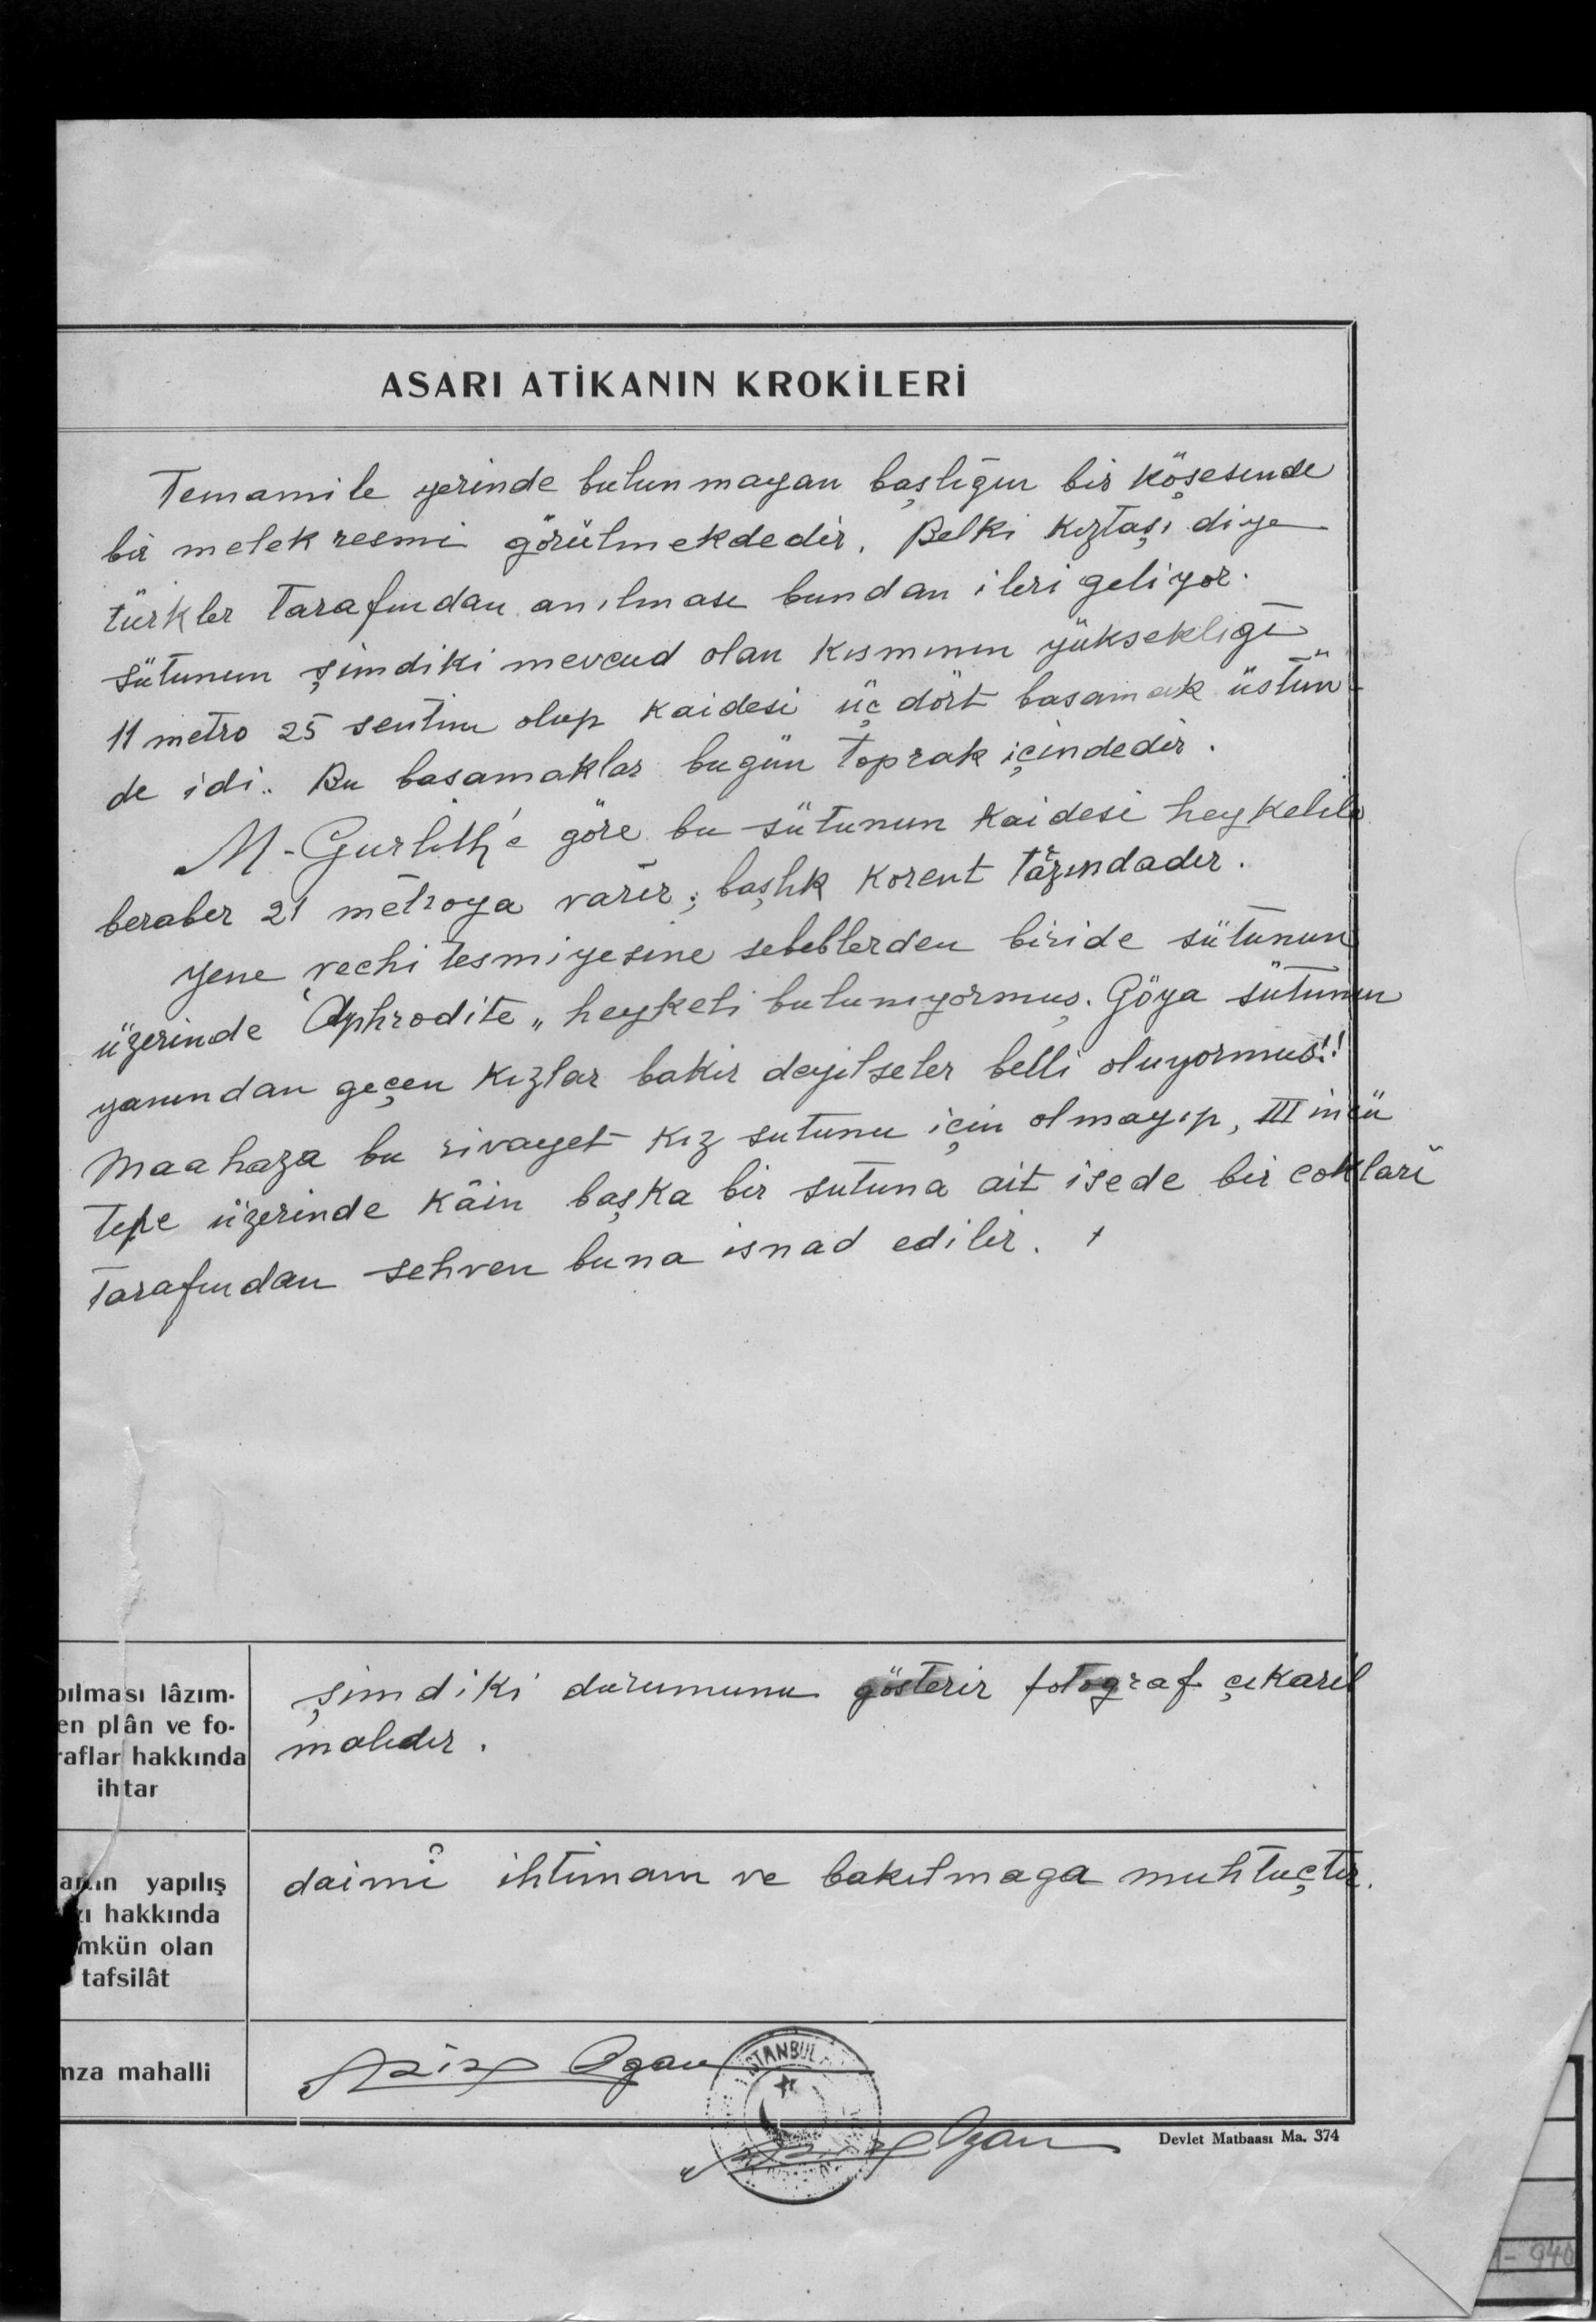 ASARI ATİKANIN KROKİLERİ
Temamile yerinde bulunmayan başlığın bir köşesinde
bir melek resmi görülmekdedir. Belki kıztaşı diye
türkler tarafından anılması bundan ileri geliyor.
sütunun şimdiki mevcud olan kısmının yüksekliği
11 metro 25 sentim olup kaidesi üç dört basamak üstün-
de idi.. Bu basamaklar bugün toprak içindedir.
M-Gurlith'e göre bu sütunun kaidesi heykelile
beraber 21 metroya varır; başlık korent tarzındadır.
yene vechi tesmiyesine sebeblerden biride sütunun
üzerinde "Aphrodite" heykeli bulunıyormuş. Göya sütunun
yanından geçen kızlar bakir deyilseler belli oluyormuş!!
Maahaza bu rivayet kız sutunu için olmayıp, III incü
tepe üzerinde kâin başka bir sutuna ait isede bir cokları
tarafından sehven buna isnad edilir.
pılması lâzım-
en plân ve fo-
raflar hakkında
ihtar
şimdiki durumunu gösterir fotograf çıkarıl
malıdır.
anın yapılış
zı hakkında
mkün olan
tafsilât
daimî ihtimam ve bakılmaga muhtaçtır.
mza mahalli
Aziz Ogan
İSTANBUL
Aziz Ogan
Devlet Matbaası Ma. 374
1-940